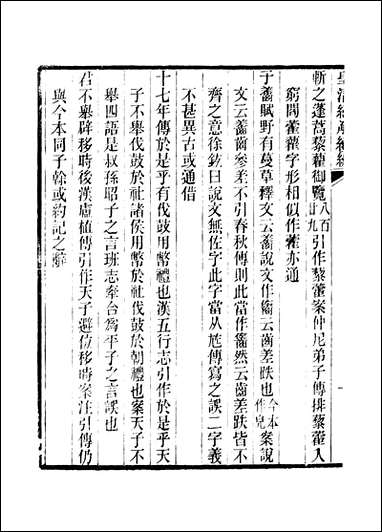 斬之蓬蒿藜藿御覽八百廿九引作藜藋案仲尼弟子傳排藜藿入
窮閻藿藋字形相似作藋亦通
子齹賦野有蔓草釋文云齹說文作云齒差跌也今本作皃案說
文云齹齒參差不引春秋傳則此當作然云齒差跌皆不
齊之意徐鉉曰說文無佐字此字當从傳寫之誤二字義
不甚異古或通借
十七年傳於是乎有伐鼓用幣禮也漢五行志引作於是乎天
子不舉伐鼓於社諸侯用幣於社伐鼓於朝禮也案天子不
舉四語是叔孫昭子之言班志牽合爲平子之言誤也
君不舉辟移時後漢盧植傳引作天子避位移時案注引傳仍
與今本同子榦或約記之辭